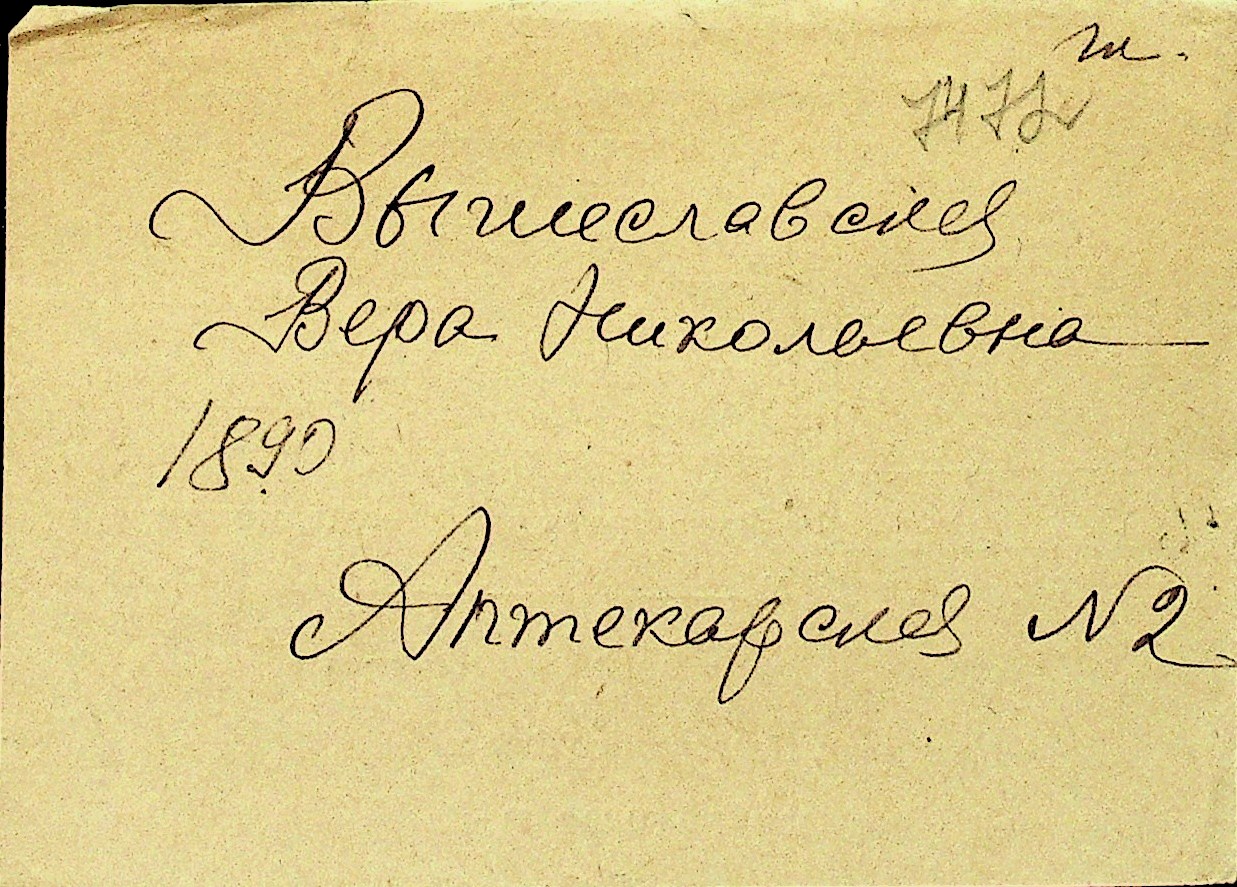 т.
7472
Вышеславская
Вера Николаевна
1890
Аптекарская N2